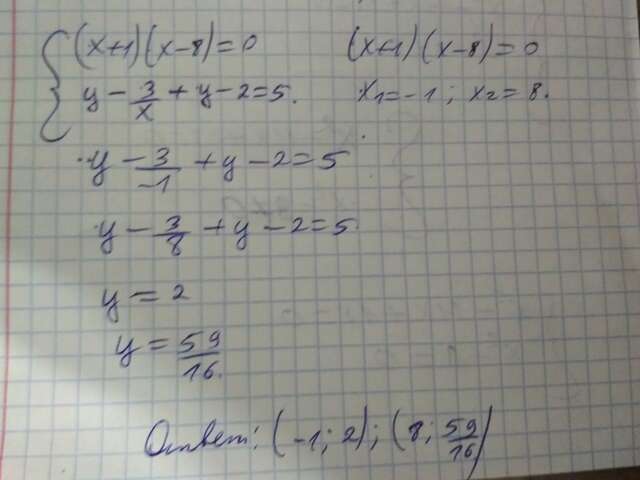 (x+1)(x-8)=0
y - 3/x + y - 2 = 5.
(x+1)(x-8)=0
x1=-1; x2=8.
y - 3/-1 + y - 2 = 5
y - 3/8 + y - 2 = 5
y = 2
y = 59/16.
Ответ: (-1; 2); (8; 59/16)